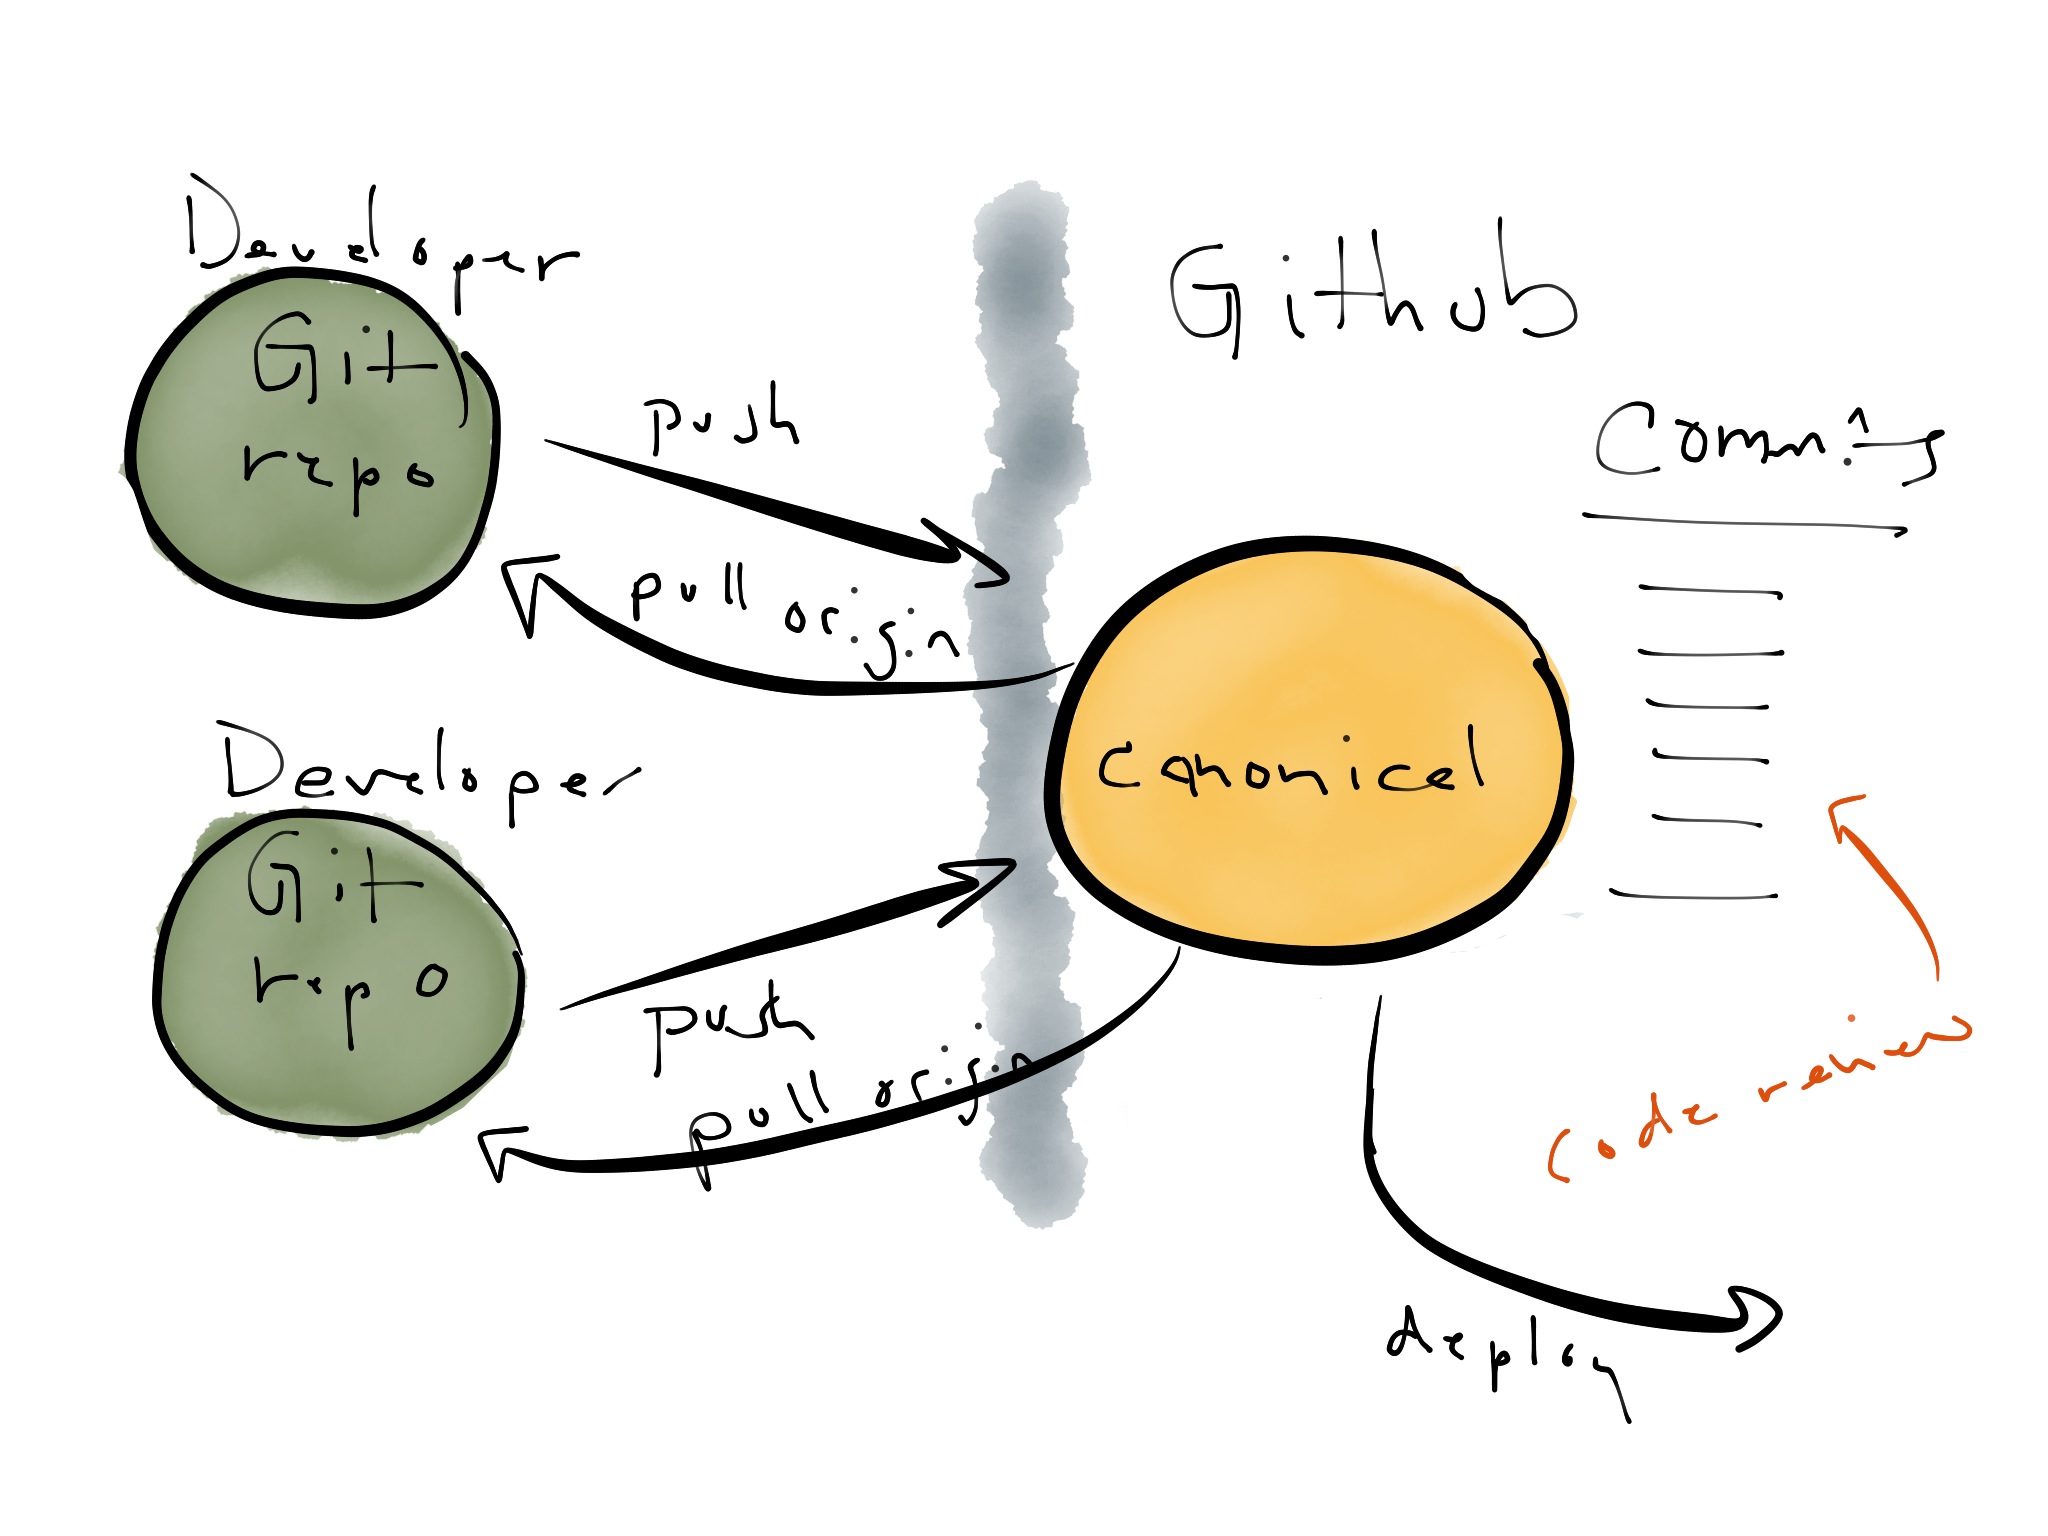 Developer
Git
repo
push
pull origin
Developer
Git
repo
push
pull origin
Github
Commits
canonical
code review
deploy